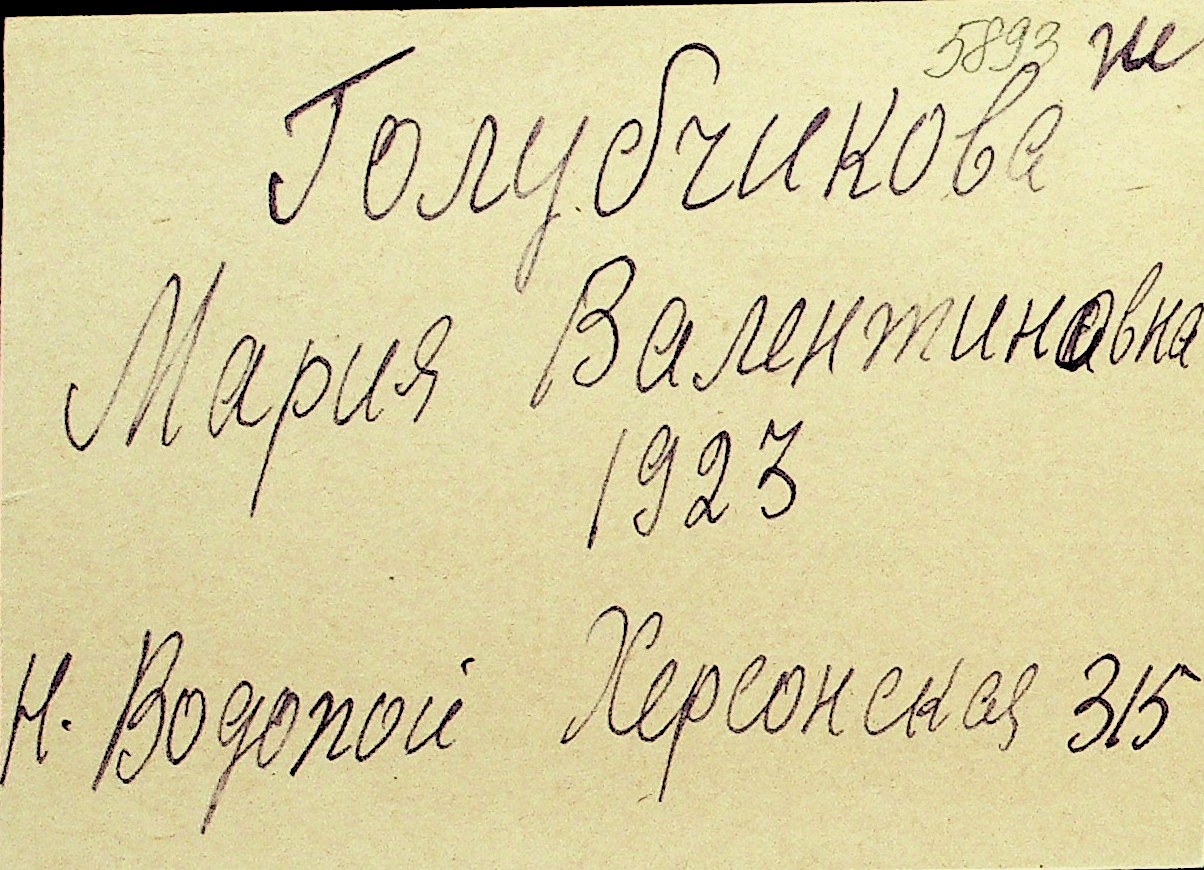 5893 ж
Голубчикова
Мария Валентиновна
1923
Н. Водопой Херсонская 315